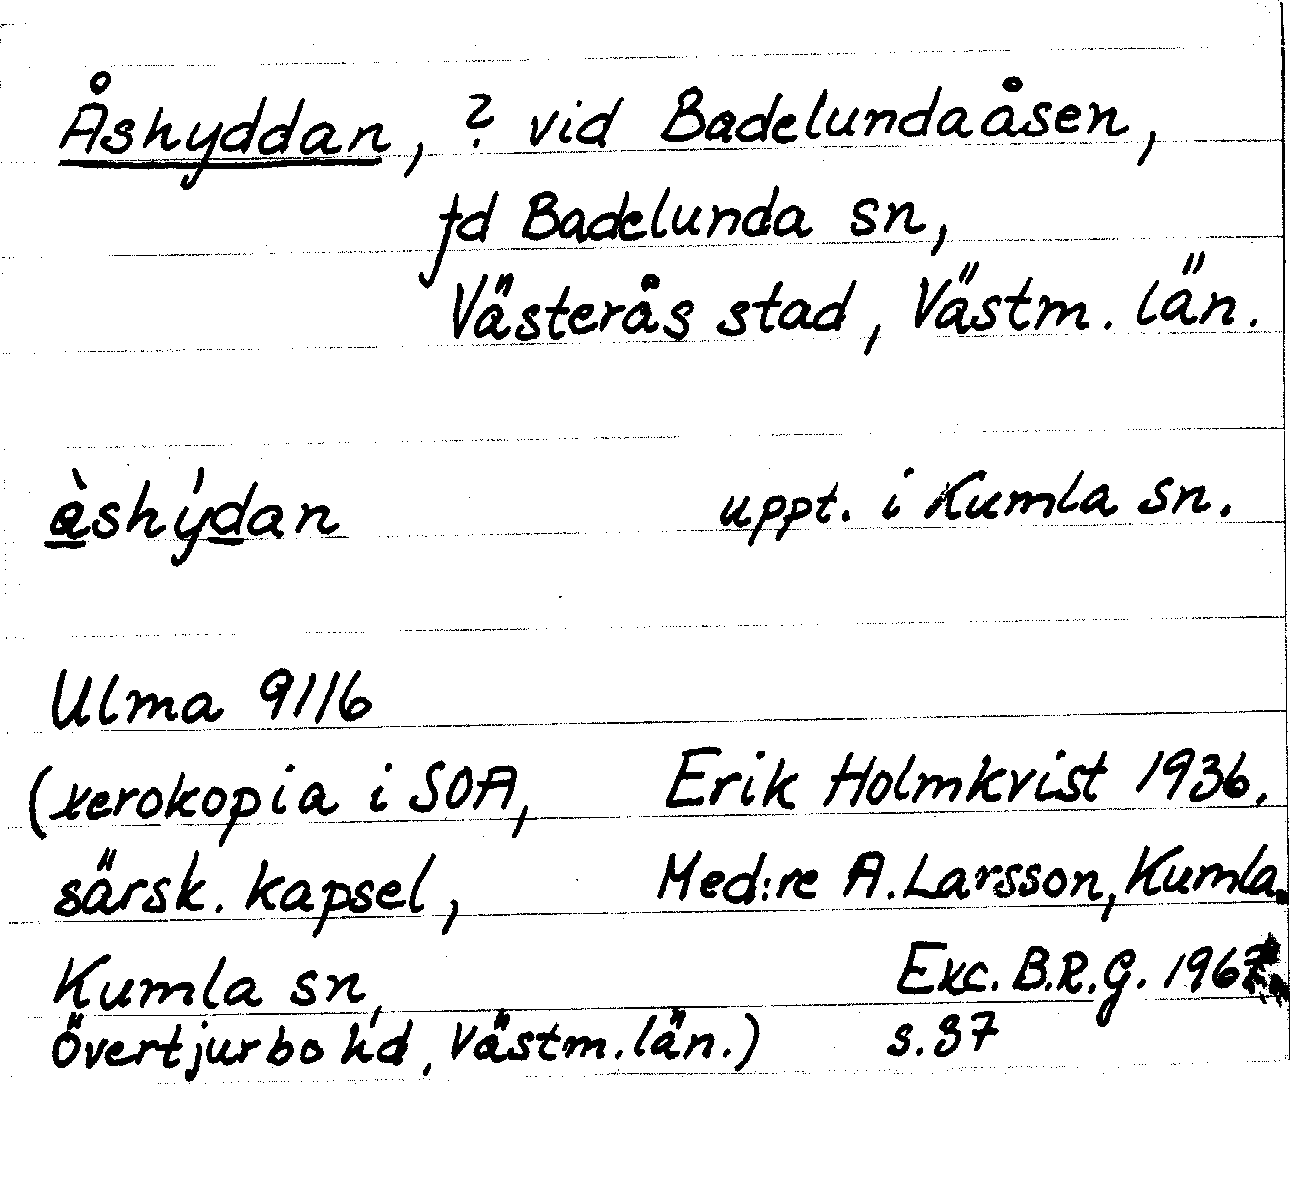 Åshyddan, ? vid Badelundaåsen,
fd Badelunda sn,
Västerås stad, Västm. län.
à̲shýd̲an uppt. i Kumla sn.
Ulma 9116
(xerokopia i SOA, Erik Holmkvist 1936.
särsk. kapsel, Med:re A. Larsson, Kumla.
Kumla sn, Exc. B.R.G. 1967.
Övertjurbo hd, Västm. län.) s. 37